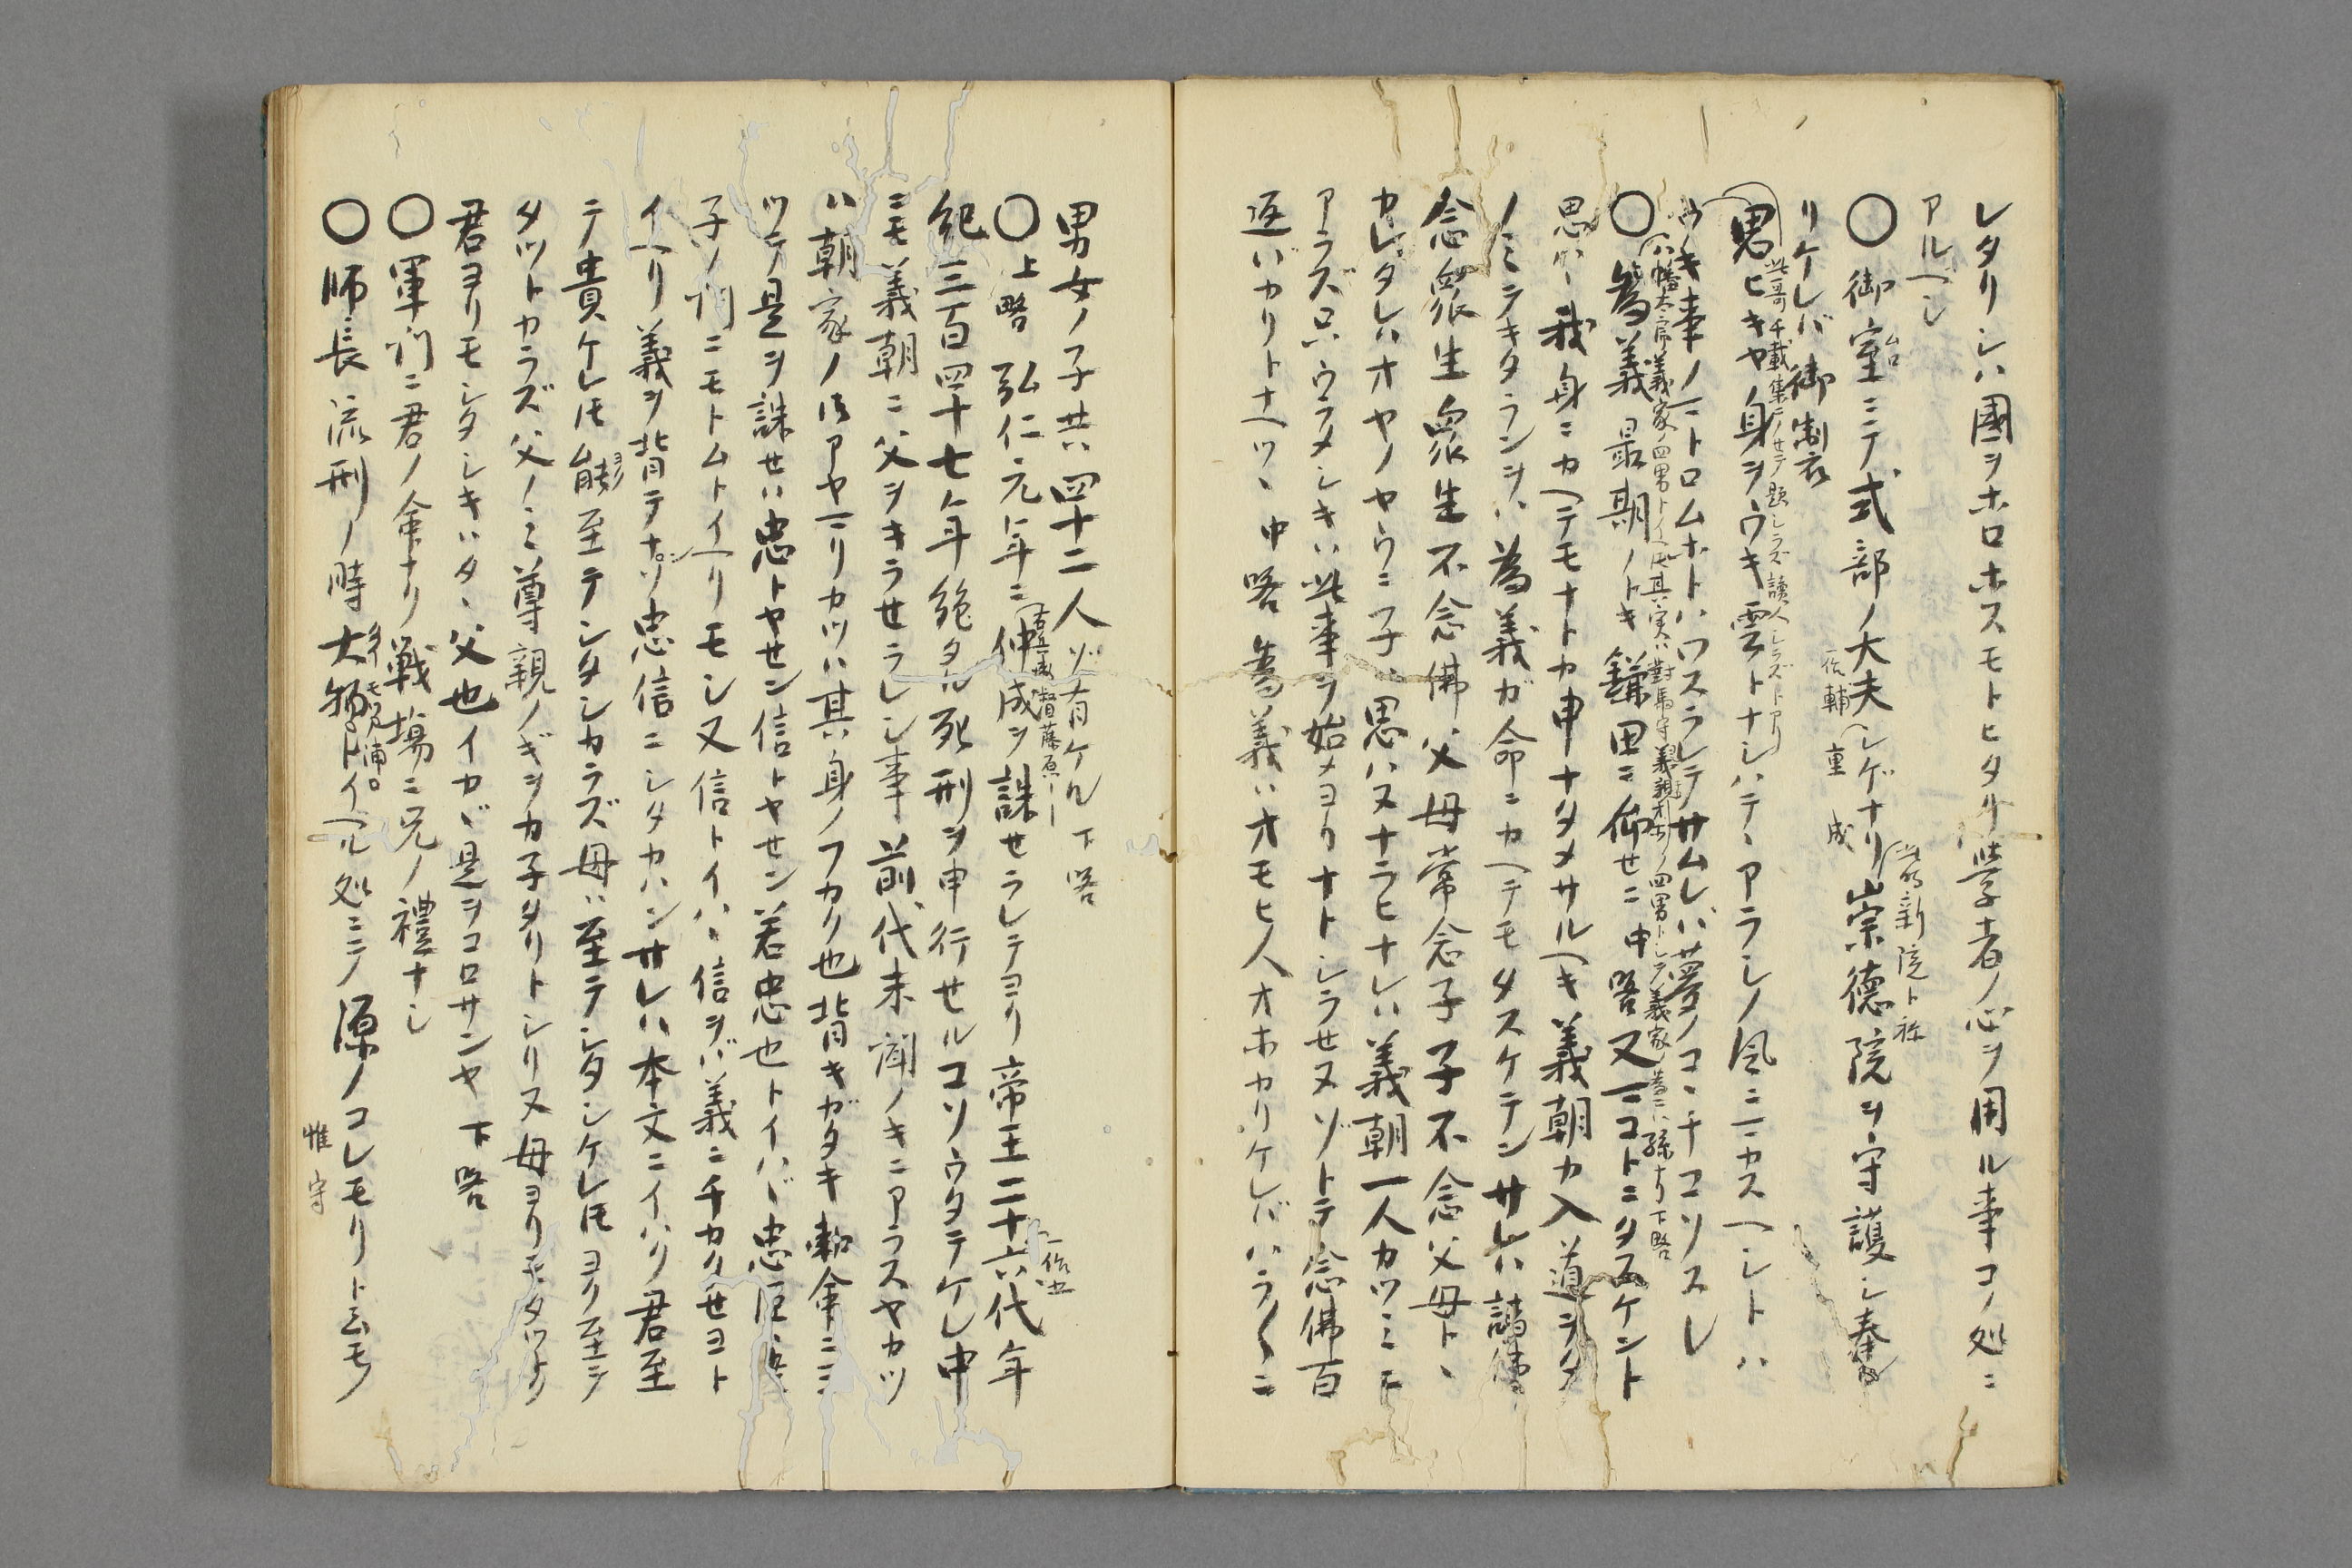 レタリシハ國ヲホロホスモトヒタリ学者ノ心ヲ用ル事コノ処ニ
アルヘシ
〇御室ニテ式部ノ大夫シゲナリ崇徳院ヲ守護シ奉
ムロ
一佐輔
重成
此所新院ト称
リケレバ御制衣
此哥千載集ニノせテ題シラズ讀人シラズトアリ
思ヒキヤ身ヲウキ雲トナシハテヽアラシノ風ニマカスヘシトハ
ウキ事ノマトロムホトハワスラレテサムレバ夢ノコヽチコソスレ
八幡太郎義家ノ四男トイヘ𪜈其実ハ對馬守義親ノ四男トシテ義家ノ為ニハ孫ナリ下略
〇為義最期ノトキ鎌田ニ仰せニ中畧又マコトニタスケント
思ハヽ我身ニカヘテモナトカ申ナタメサルヘキ義朝カ入道ヲタ
ノミテキタランヲハ為義ガ命ニカヘテモタスケテンサレハ諸佛
念衆生衆生不念佛父母常念子子不念父母トヽ
カレタレハオヤノヤウニ子ハ思ハヌナラヒナレハ義朝一人カツミニ
アラズ只ウラメシキハ此事ヲ始メヨリナトシラせヌゾトテ念佛百
返バカリトナヘツヽ中畧為義ハオモヒ人オホカリケレバハラ〱ニ
男女ノ子共四十二人ゾ有ケル下畧
〇上略弘仁元年ニ仲成ヲ誅せラレテヨリ帝王二十六代年
右兵衛督藤原
一作五
紀三百四十七年絶タル死刑ヲ申行せルコソウタテケレ中
ニモ義朝ニ父ヲキラせラレシ事前代未聞ノキニアラスヤカツ
ハ朝家ノ御アヤマリカツハ其身ノフカク也背キガタキ勅命ニヨ
ツテ是ヲ誅せハ忠トヤせン信トヤせン若忠也トイハヾ忠臣ハ孝
子ノ門ニモトムトイヘリモシ又信トイハヽ信ヲバ義ニチカクせヨト
イヘリ義ヲ背テナンゾ忠信ニシタカハンサレハ本文ニイハク君至
テ貴ケレ𪜈至テシタシカラズ母ハ至テシタシケレ𪜈ヨク至テ
タツトカラズ父ノミ尊親ノギヲカ子タリトシリヌ母ヨリモタツトク
君ヨリモシタシキハタヽ父也イカヾ是ヲコロサンヤ下畧
〇軍門ニ君ノ命ナリ戦場ニ兄ノ禮ナシ
〇師長流刑ノ時大物トイヘル処ニテ源ノコレモリト云モノ
惟守